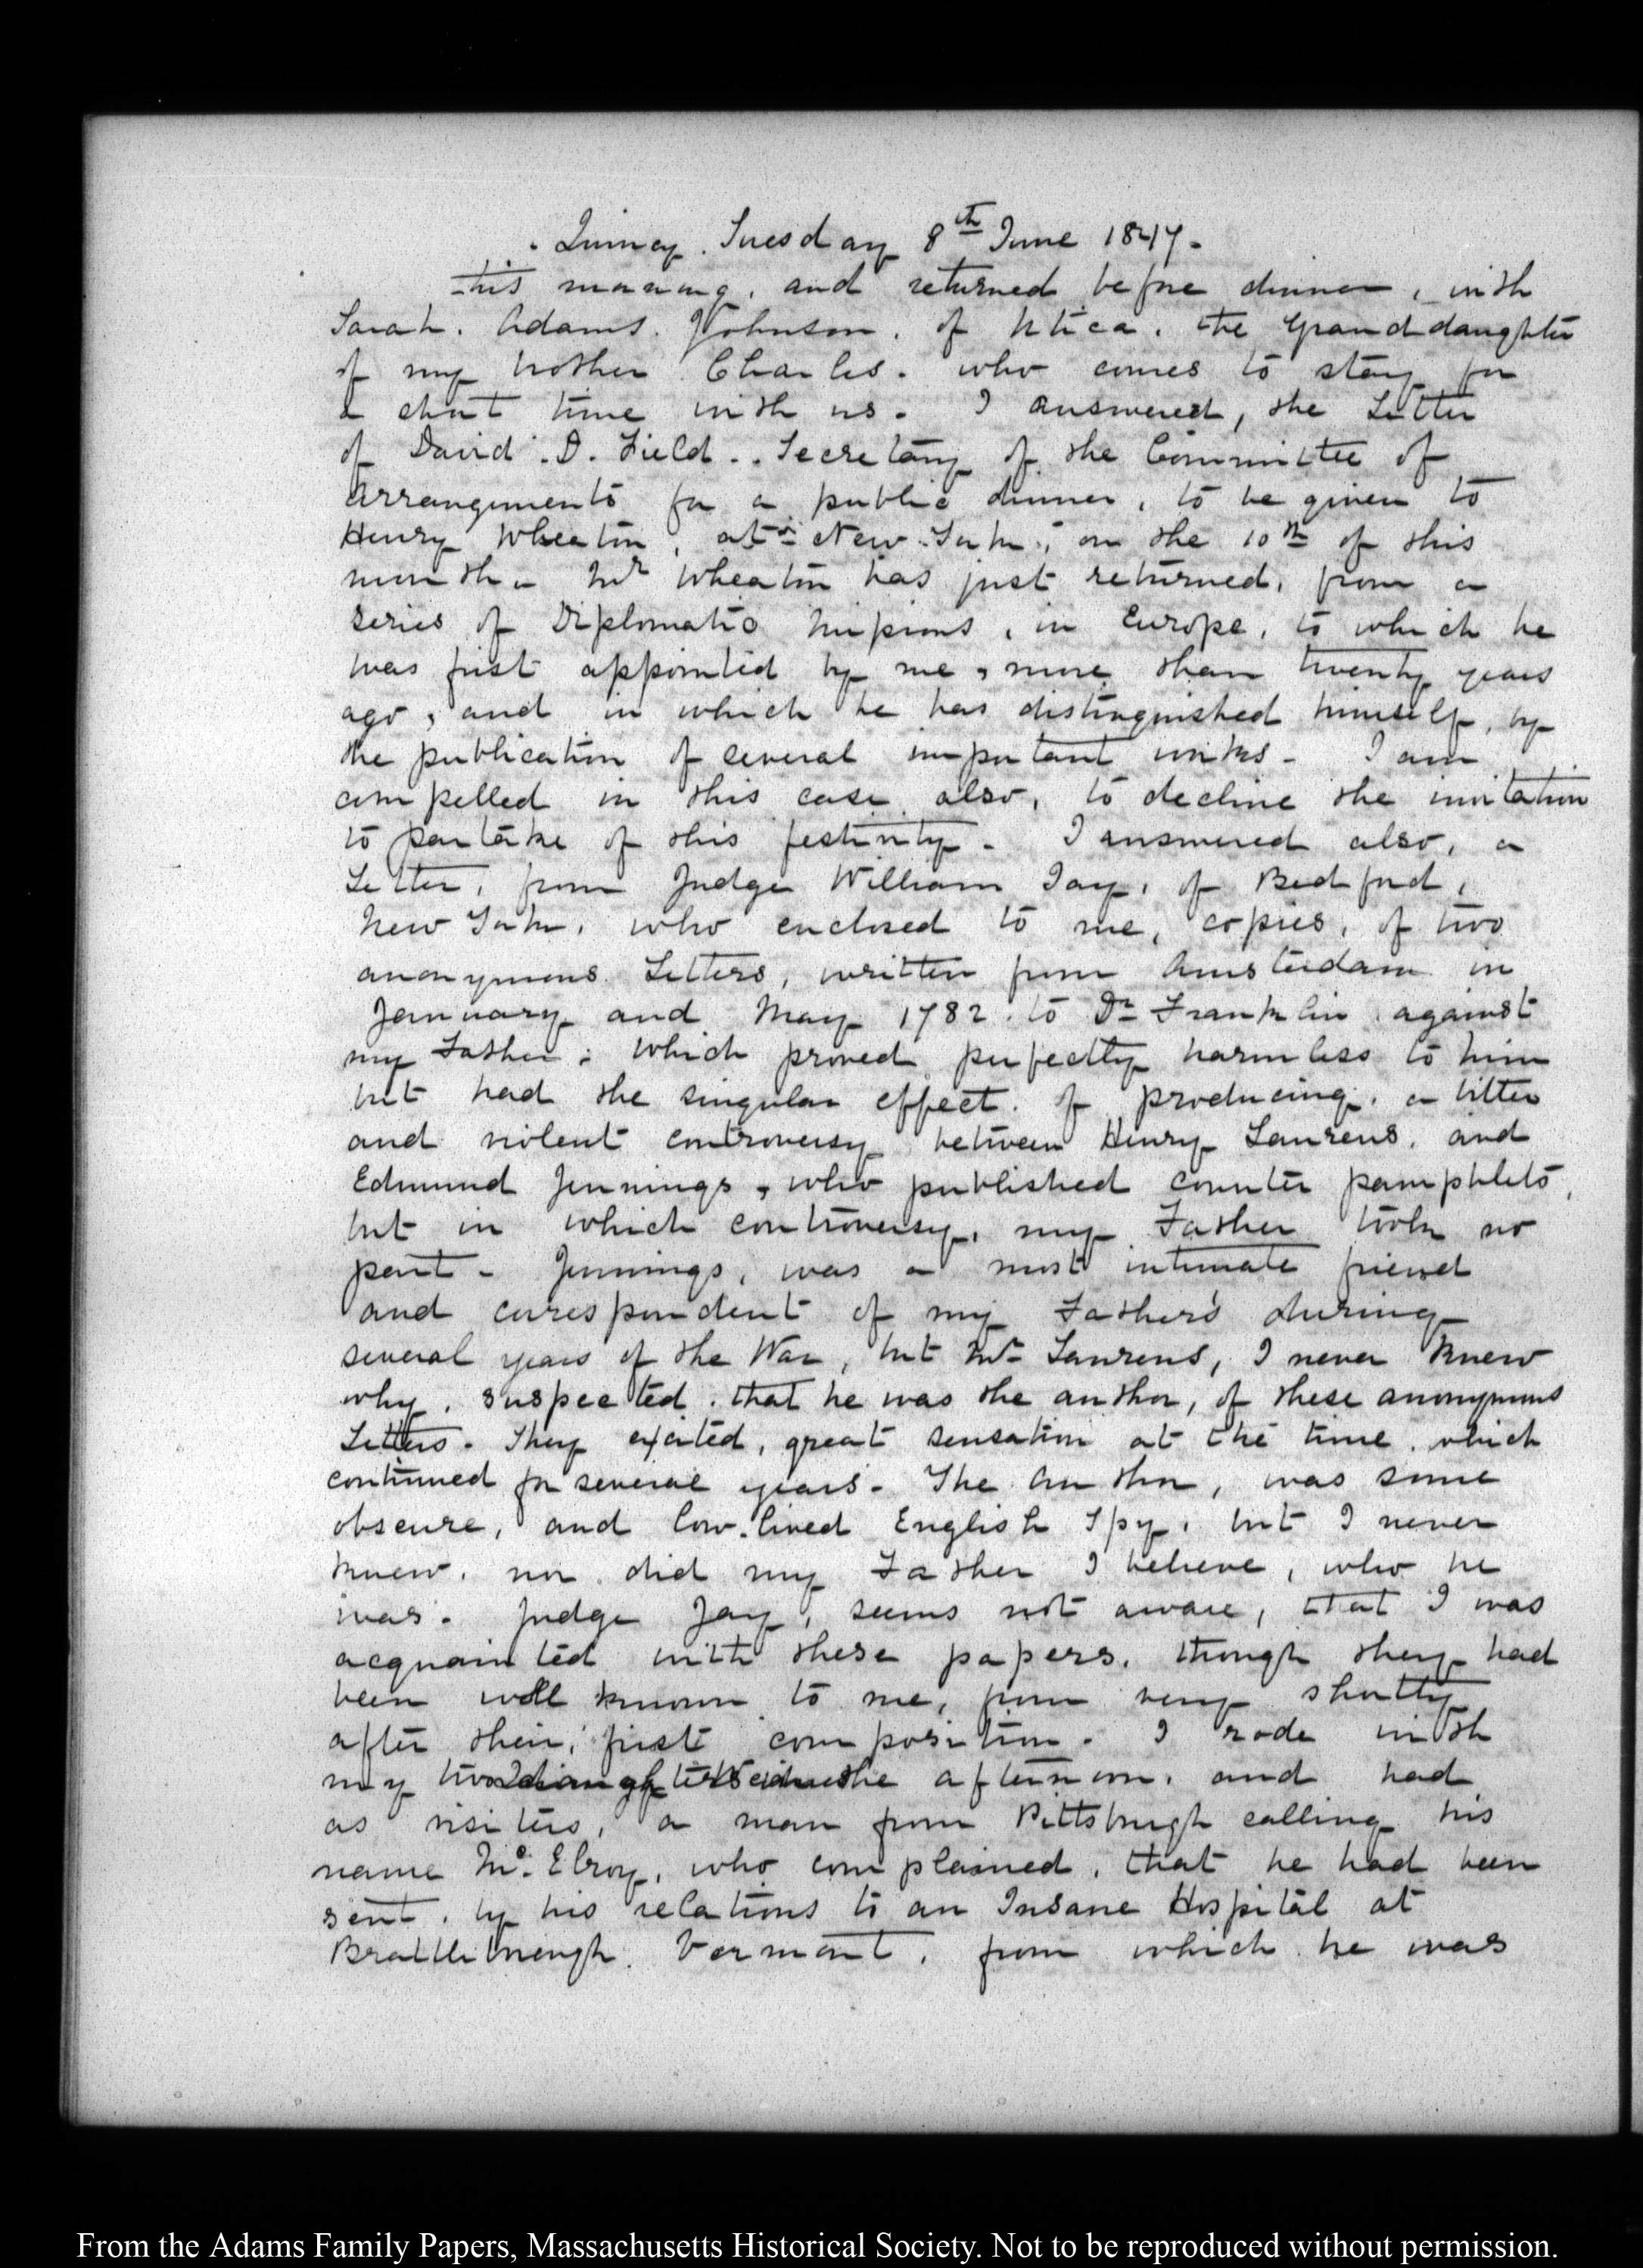 . Quincy. Tuesday 8th June 1847.
this morning, and returned before dinner, with
Sarah. Adams. Johnson, of Utica. the Granddaughter
of my brother Charles. who comes to stay for
a short time with us. I answered, the Letter
of David. D. Field.. Secretary of the Committee of
Arrangements for a public dinner, to be given to
Henry Wheaton, at New-York, on the 10th of this
month. Mr Wheaton has just returned, from a
series of Diplomatic Missions, in Europe, to which he
was first appointed by me, more than twenty years
ago, and in which he has distinguished himself, by
the publication of several important works. I am
compelled in this case also, to decline the invitation
to partake of this festivity. I answered also, a
Letter, from Judge William Jay, of Bedford,
New York, who enclosed to me, copies, of two
anonymous Letters, written from Amsterdam in
January and May 1782. to Dr Franklin against
my Father; which proved perfectly harmless to him
but had the singular effect of producing, a bitter
and violent controversy between Henry Laurens, and
Edmund Jennings, who published counter pamphlets,
but in which controversy, my Father took no
part. Jennings, was a most intimate friend
and correspondent of my Father's during
several years of the War, but Mr Laurens, I never knew
why, suspected, that he was the author, of these anonymous
Letters. They excited, great sensation at the time, which
continued for several years. The Author, was some
obscure, and low-lived English Spy, but I never
knew, nor did my Father I believe, who he
was. Judge Jay, seems not aware, that I was
acquainted with these papers, though they had
been well known to me, from very shortly
after their, first composition. I rode with
my two daughters in the afternoon, and had
as visiters, a man from Pittsburgh calling his
name Mc. Elroy, who complained, that he had been
sent, by his relations to an Insane Hospital at
Brattleborough. Vermont, from which he was
From the Adams Family Papers, Massachusetts Historical Society. Not to be reproduced without permission.